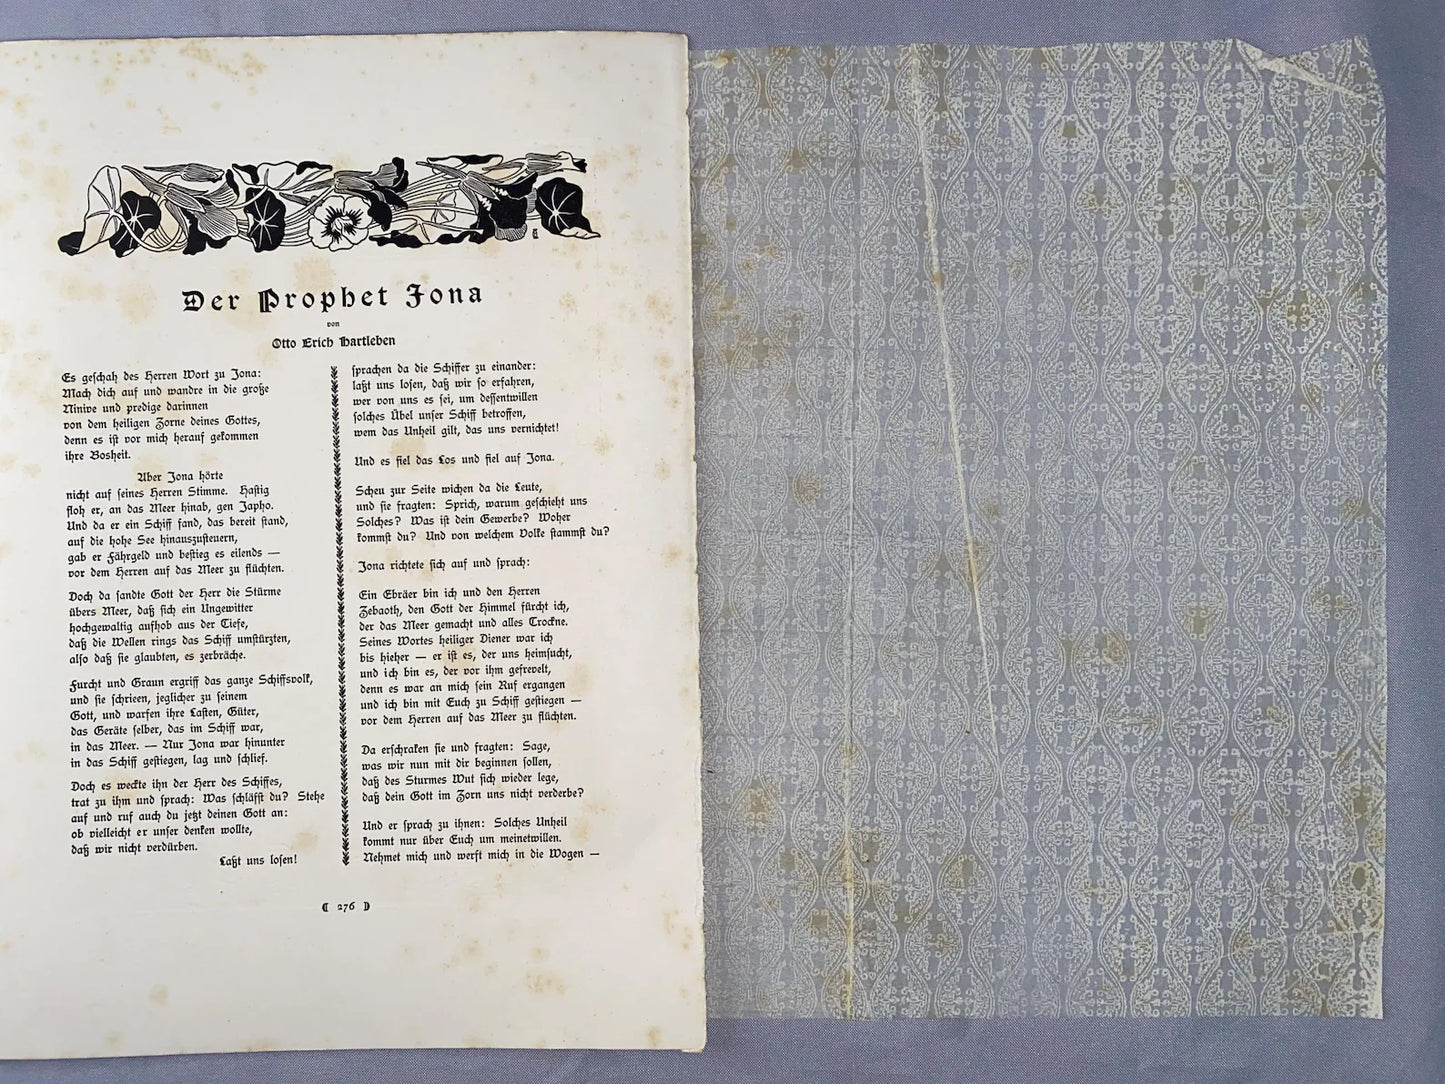 Der Prophet Jona
von
Otto Erich Hartleben
Es geschah des Herren Wort zu Jona:
Mach dich auf und wandre in die große
Ninive und predige darinnen
von dem heiligen Zorne deines Gottes,
denn es ist vor mich herauf gekommen
ihre Bosheit.
Aber Jona hörte
nicht auf seines Herren Stimme. Hastig
floh er, an das Meer hinab, gen Japho.
Und da er ein Schiff fand, das bereit stand,
auf die hohe See hinauszusteuern,
gab er Fährgeld und bestieg es eilends —
vor dem Herren auf das Meer zu flüchten.
Doch da sandte Gott der Herr die Stürme
übers Meer, daß sich ein Ungewitter
hochgewaltig aufhob aus der Tiefe,
daß die Wellen rings das Schiff umstürzten,
also daß sie glaubten, es zerbräche.
Furcht und Graun ergriff das ganze Schiffsvolk,
und sie schrieen, jeglicher zu seinem
Gott, und warfen ihre Lasten, Güter,
das Geräte selber, das im Schiff war,
in das Meer. — Nur Jona war hinunter
in das Schiff gestiegen, lag und schlief.
Doch es weckte ihn der Herr des Schiffes,
trat zu ihm und sprach: Was schläfst du? Stehe
auf und ruf auch du jetzt deinen Gott an:
ob vielleicht er unser denken wollte,
daß wir nicht verdürben.
Laßt uns losen!
sprachen da die Schiffer zu einander:
laßt uns losen, daß wir so erfahren,
wer von uns es sei, um dessentwillen
solches Übel unser Schiff betroffen,
wem das Unheil gilt, das uns vernichtet!
Und es fiel das Los und fiel auf Jona.
Scheu zur Seite wichen da die Leute,
und sie fragten: Sprich, warum geschieht uns
Solches? Was ist dein Gewerbe? Woher
kommst du? Und von welchem Volke stammst du?
Jona richtete sich auf und sprach:
Ein Ebräer bin ich und den Herren
Zebaoth, den Gott der Himmel fürcht ich,
der das Meer gemacht und alles Trockne.
Seines Wortes heiliger Diener war ich
bis hieher — er ist es, der uns heimsucht,
und ich bin es, der vor ihm gefrevelt,
denn es war an mich sein Ruf ergangen
und ich bin mit Euch zu Schiff gestiegen —
vor dem Herren auf das Meer zu flüchten.
Da erschraken sie und fragten: Sage,
was wir nun mit dir beginnen sollen,
daß des Sturmes Wut sich wieder lege,
daß dein Gott im Zorn uns nicht verderbe?
Und er sprach zu ihnen: Solches Unheil
kommt nur über Euch um meinetwillen.
Nehmet mich und werft mich in die Wogen —
276